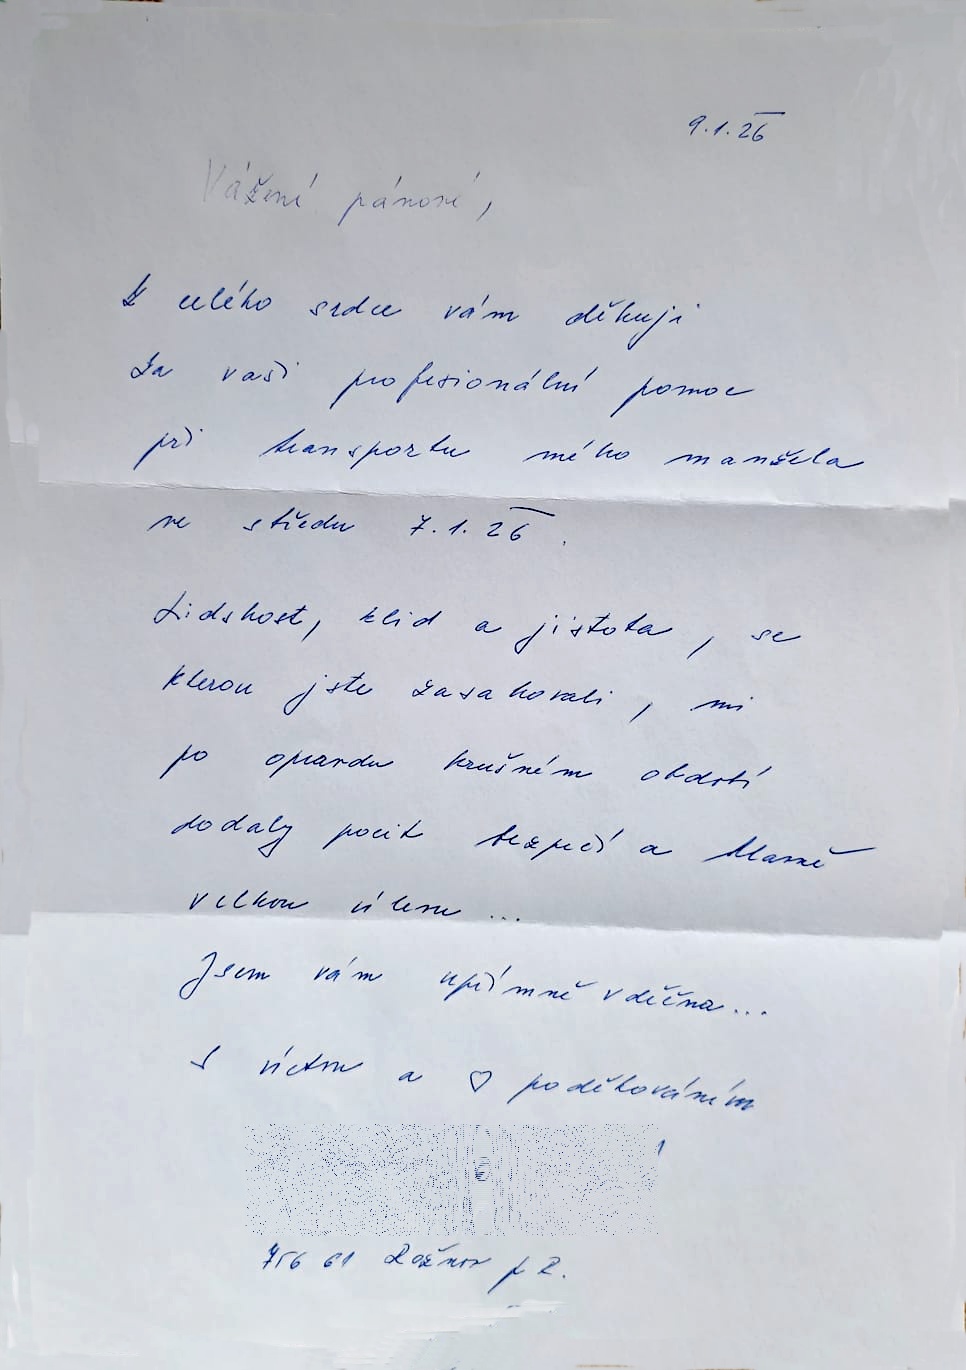 9.1.26
Vážení pánové,
Z celého srdce vám děkuji
za vaši profesionální pomoc
při transportu mého manžela
ve středu 7.1.26.
Lidskost, klid a jistota, se
kterou jste zasahovali, mi
po opravdu krušném období
dodaly pocit bezpečí a hlavně
velkou úlevu...
Jsem vám upřímně vděčna...
S úctou a ♡ poděkováním
756 61 Rožnov p R.